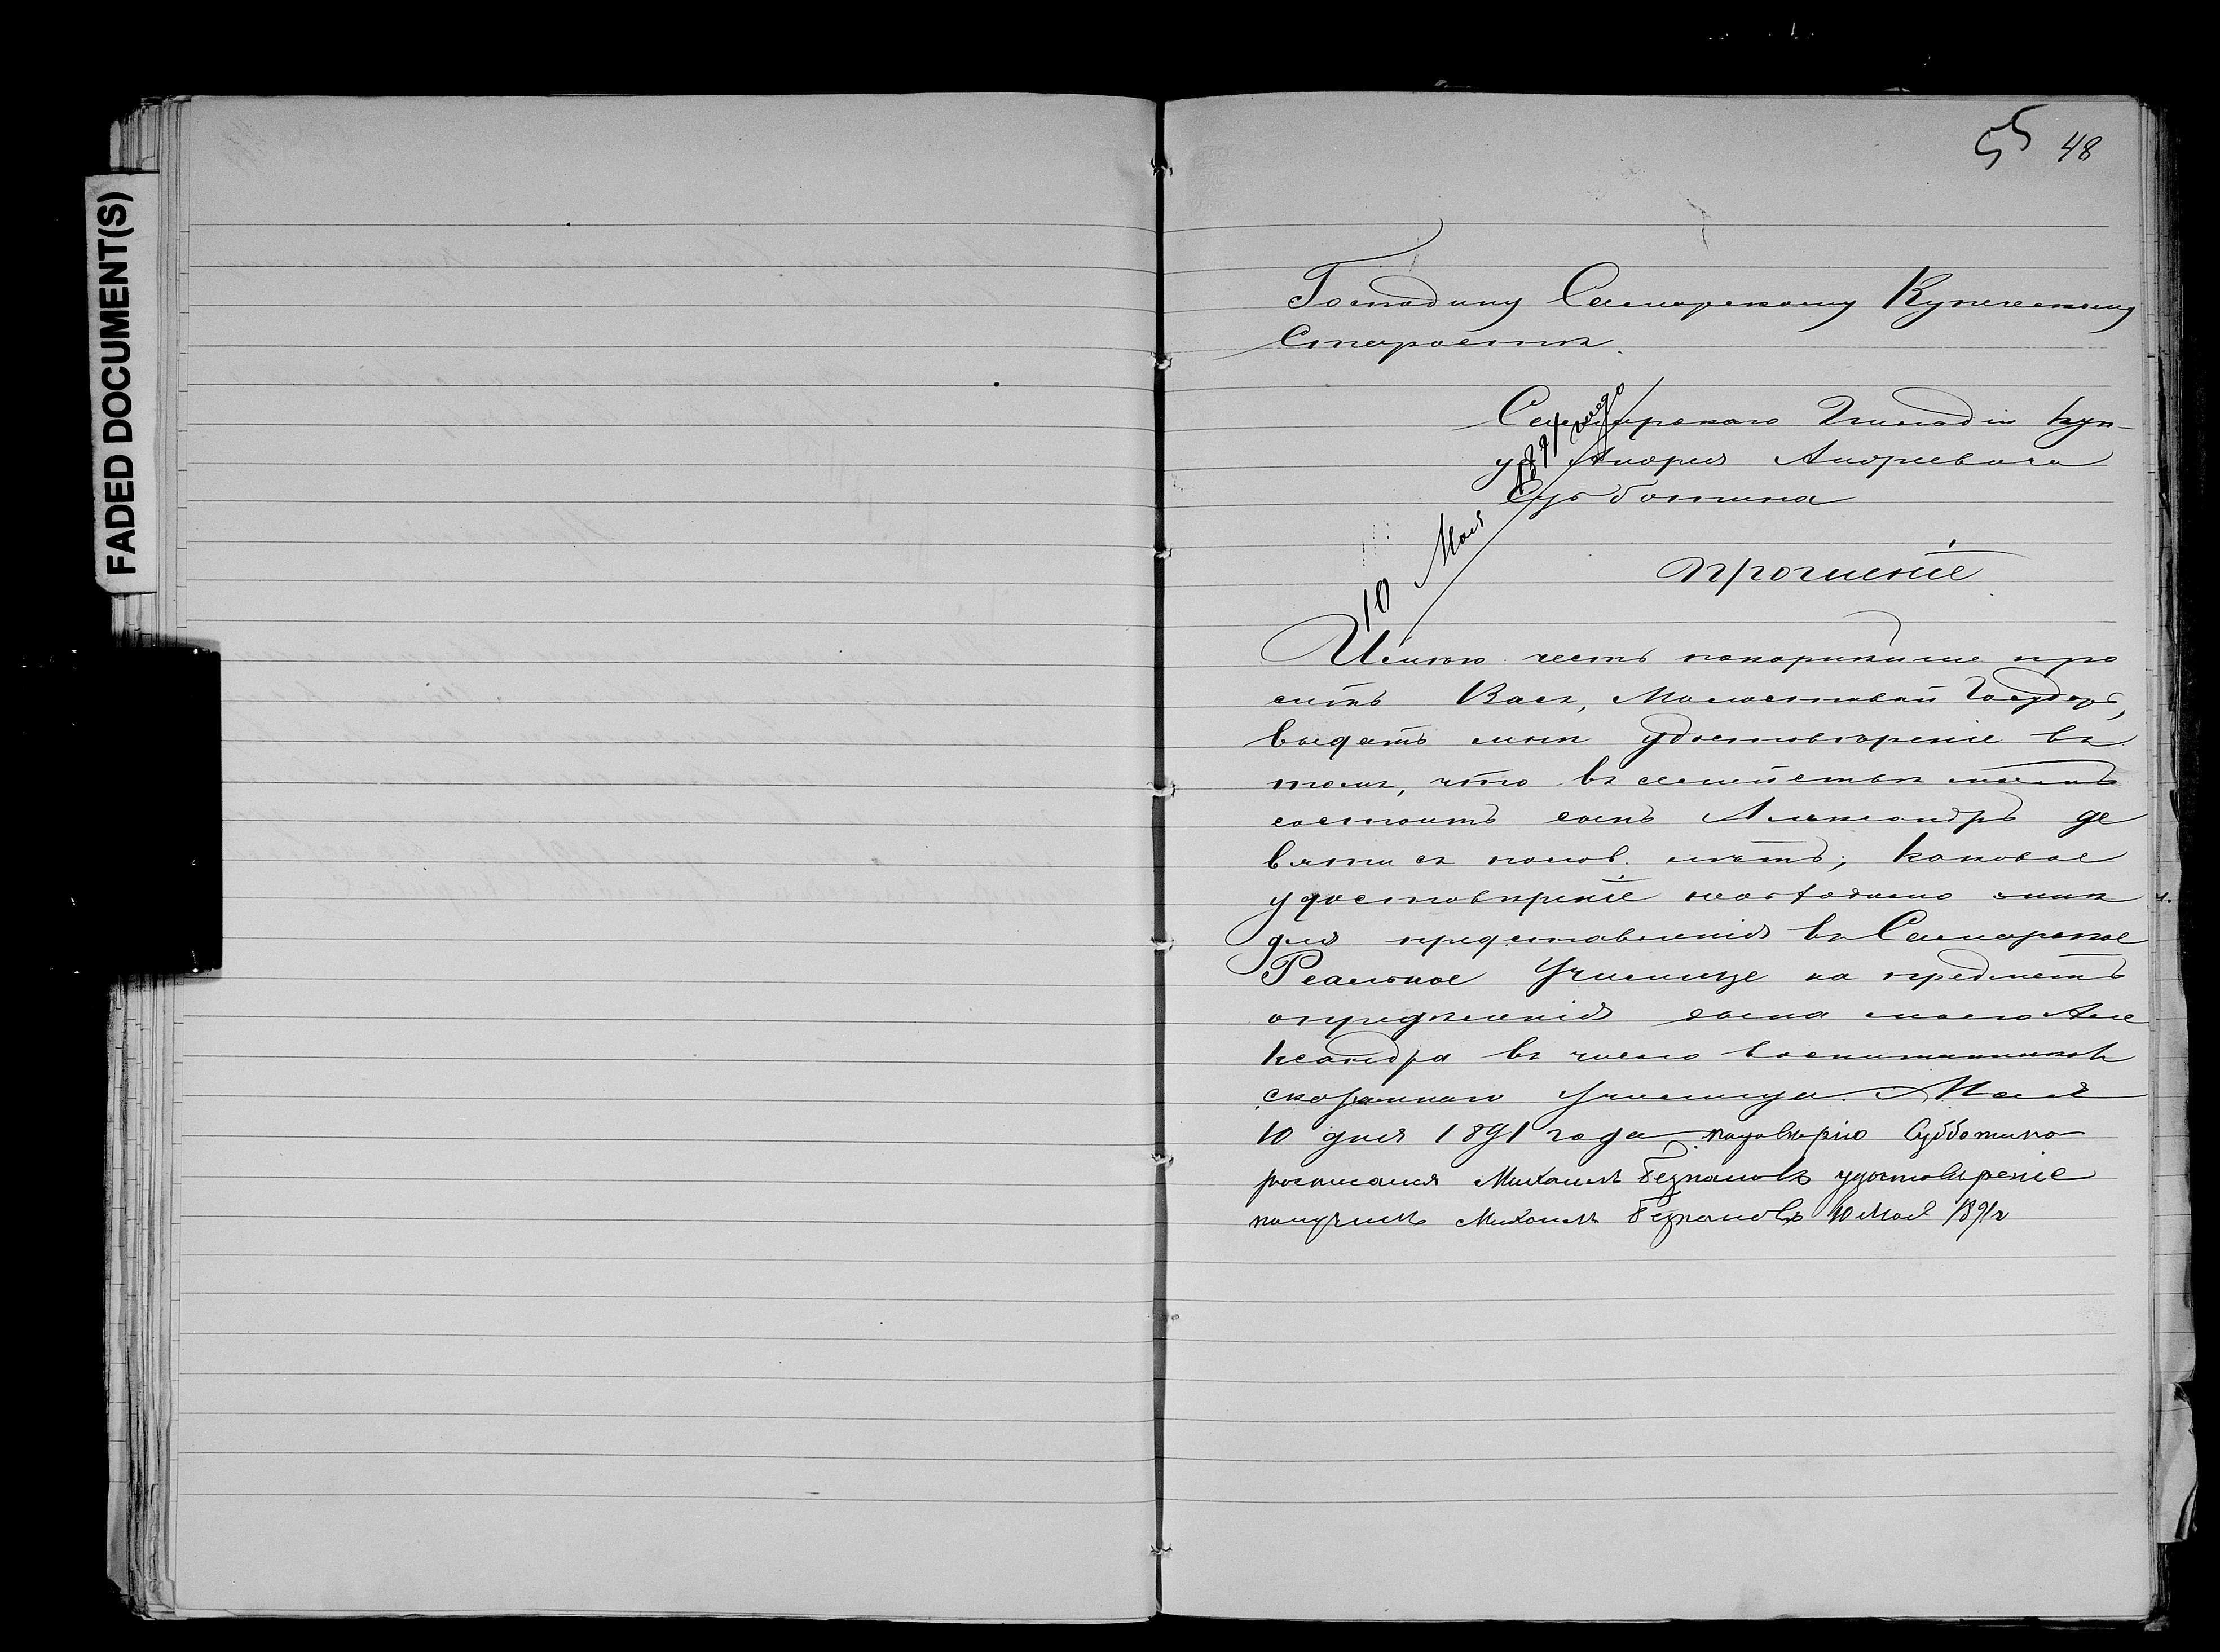 FADED DOCUMENT(S)
55 48
Господину Самарскому Купеческому
Старостѣ.
10 Мая 1891 года
Самарскаго 2й гильдіи куп-
ца Андрея Андреевича
Субботина
прошеніе
Имѣю честь покорнѣйше про
сить Васъ, Милостивый Государь,
выдать мнѣ удостовѣреніе въ
томъ, что въ семействѣ моемъ
состоитъ сынъ Александръ де
вяти съ полов. лѣтъ; каковое
удостовѣреніе необходимо мнѣ
для представленія въ Самарское
Реальное Училище на предметъ
опредѣленія сына моего Але
ксандра въ число воспитанниковъ
сказаннаго училища. Мая
10 дня 1891 года. По довѣрію Субботина
росписался Михаилъ удостовѣреніе
получилъ Михаилъ 10 Мая 1891 г